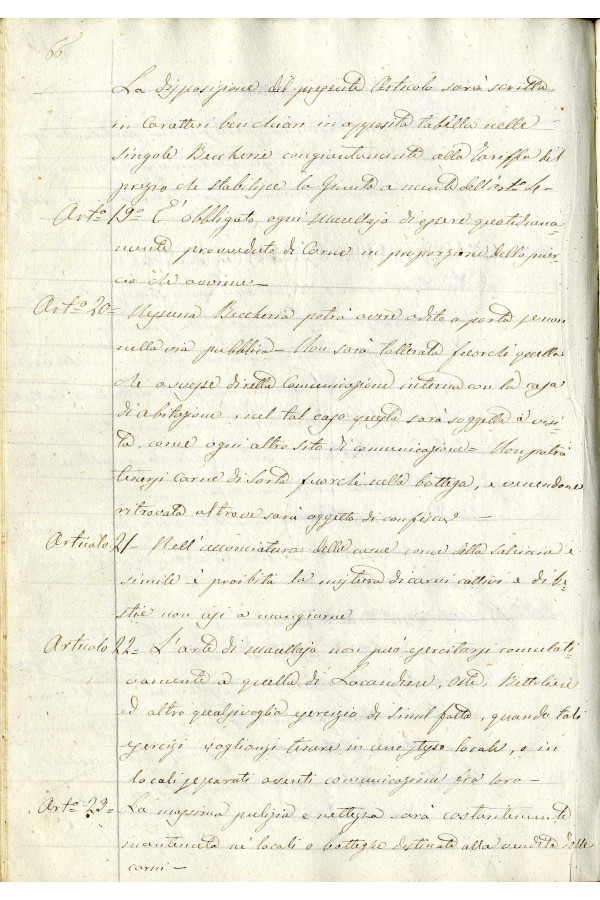 66
La disposizione del presente Articolo sarà scritta
in Caratteri ben chiari in apposita tabella nelle
singole Beccherie congiuntamente alla tariffa del
prezzo che stabilisce la Giunta a mente dell'arto 4 -
Arto 19o E' obbligato ogni Macellajo di essere quotidiana-
mente provveduto di Carne in proporzione dello smer-
cio che avviene -
Arto 20= Nessuna Beccheria potrà avere adito o porta se non
nella via pubblica - Non sarà tollerata fuorchè quella
che avesse diretta Comunicazione interna con la casa
di abitazione, nel tal caso questa sarà soggetta a visi-
ta come ogni altro sito di comunicazione - Non potrà
tenersi carne di sorta fuorchè nella bottega, e venendone
ritrovata altrove sarà oggetto di confisca -
Articolo 21 - Nell'acconciatura delle carne come della salsiccia e
simile è proibita la mistura di carni cattive e di be-
stie non usi a mangiarne
Articolo 22 - L'arte di macellajo non può esercitarsi comulati-
vamente a quella di Locandiere, Oste, Bettoliere
ed altro qualsivoglia esercizio di simil fatta, quando tali
esercizi voglionsi tenere in uno stesso locale, o in
locali separati aventi comunicazione fra loro -
Arto 23= La massima pulizia e nettezza sarà costantemente
mantenuta nè locali o botteghe destinate alla vendita delle
carni -